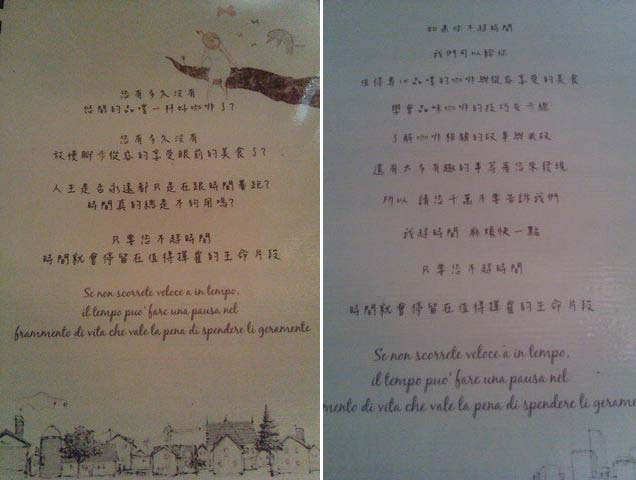 您有多久沒有
悠閒的品嚐一杯好咖啡了?
您有多久沒有
放慢腳步從容的享受眼前的美食了?
人生是否永遠都只是在跟時間賽跑?
時間真的總是不夠用嗎?
只要您不趕時間
時間就會停留在值得揮霍的生命片段
Se non scorrete veloce a in tempo,
il tempo puo' fare una pausa nel
frammento di vita che vale la pena di spendere li geramente
如果你不趕時間
我們可以給你
值得專心品嚐的咖啡與從容享受的美食
學會品味咖啡的技巧及步驟
了解咖啡相關的故事與典故
還有太多有趣的事等著您來發現
所以 請您千萬不要告訴我們
我趕時間 麻煩快一點
只要您不趕時間
時間就會停留在值得揮霍的生命片段
Se non scorrete veloce a in tempo,
il tempo puo' fare una pausa nel
mento di vita che vale la pena di spendere li gerame